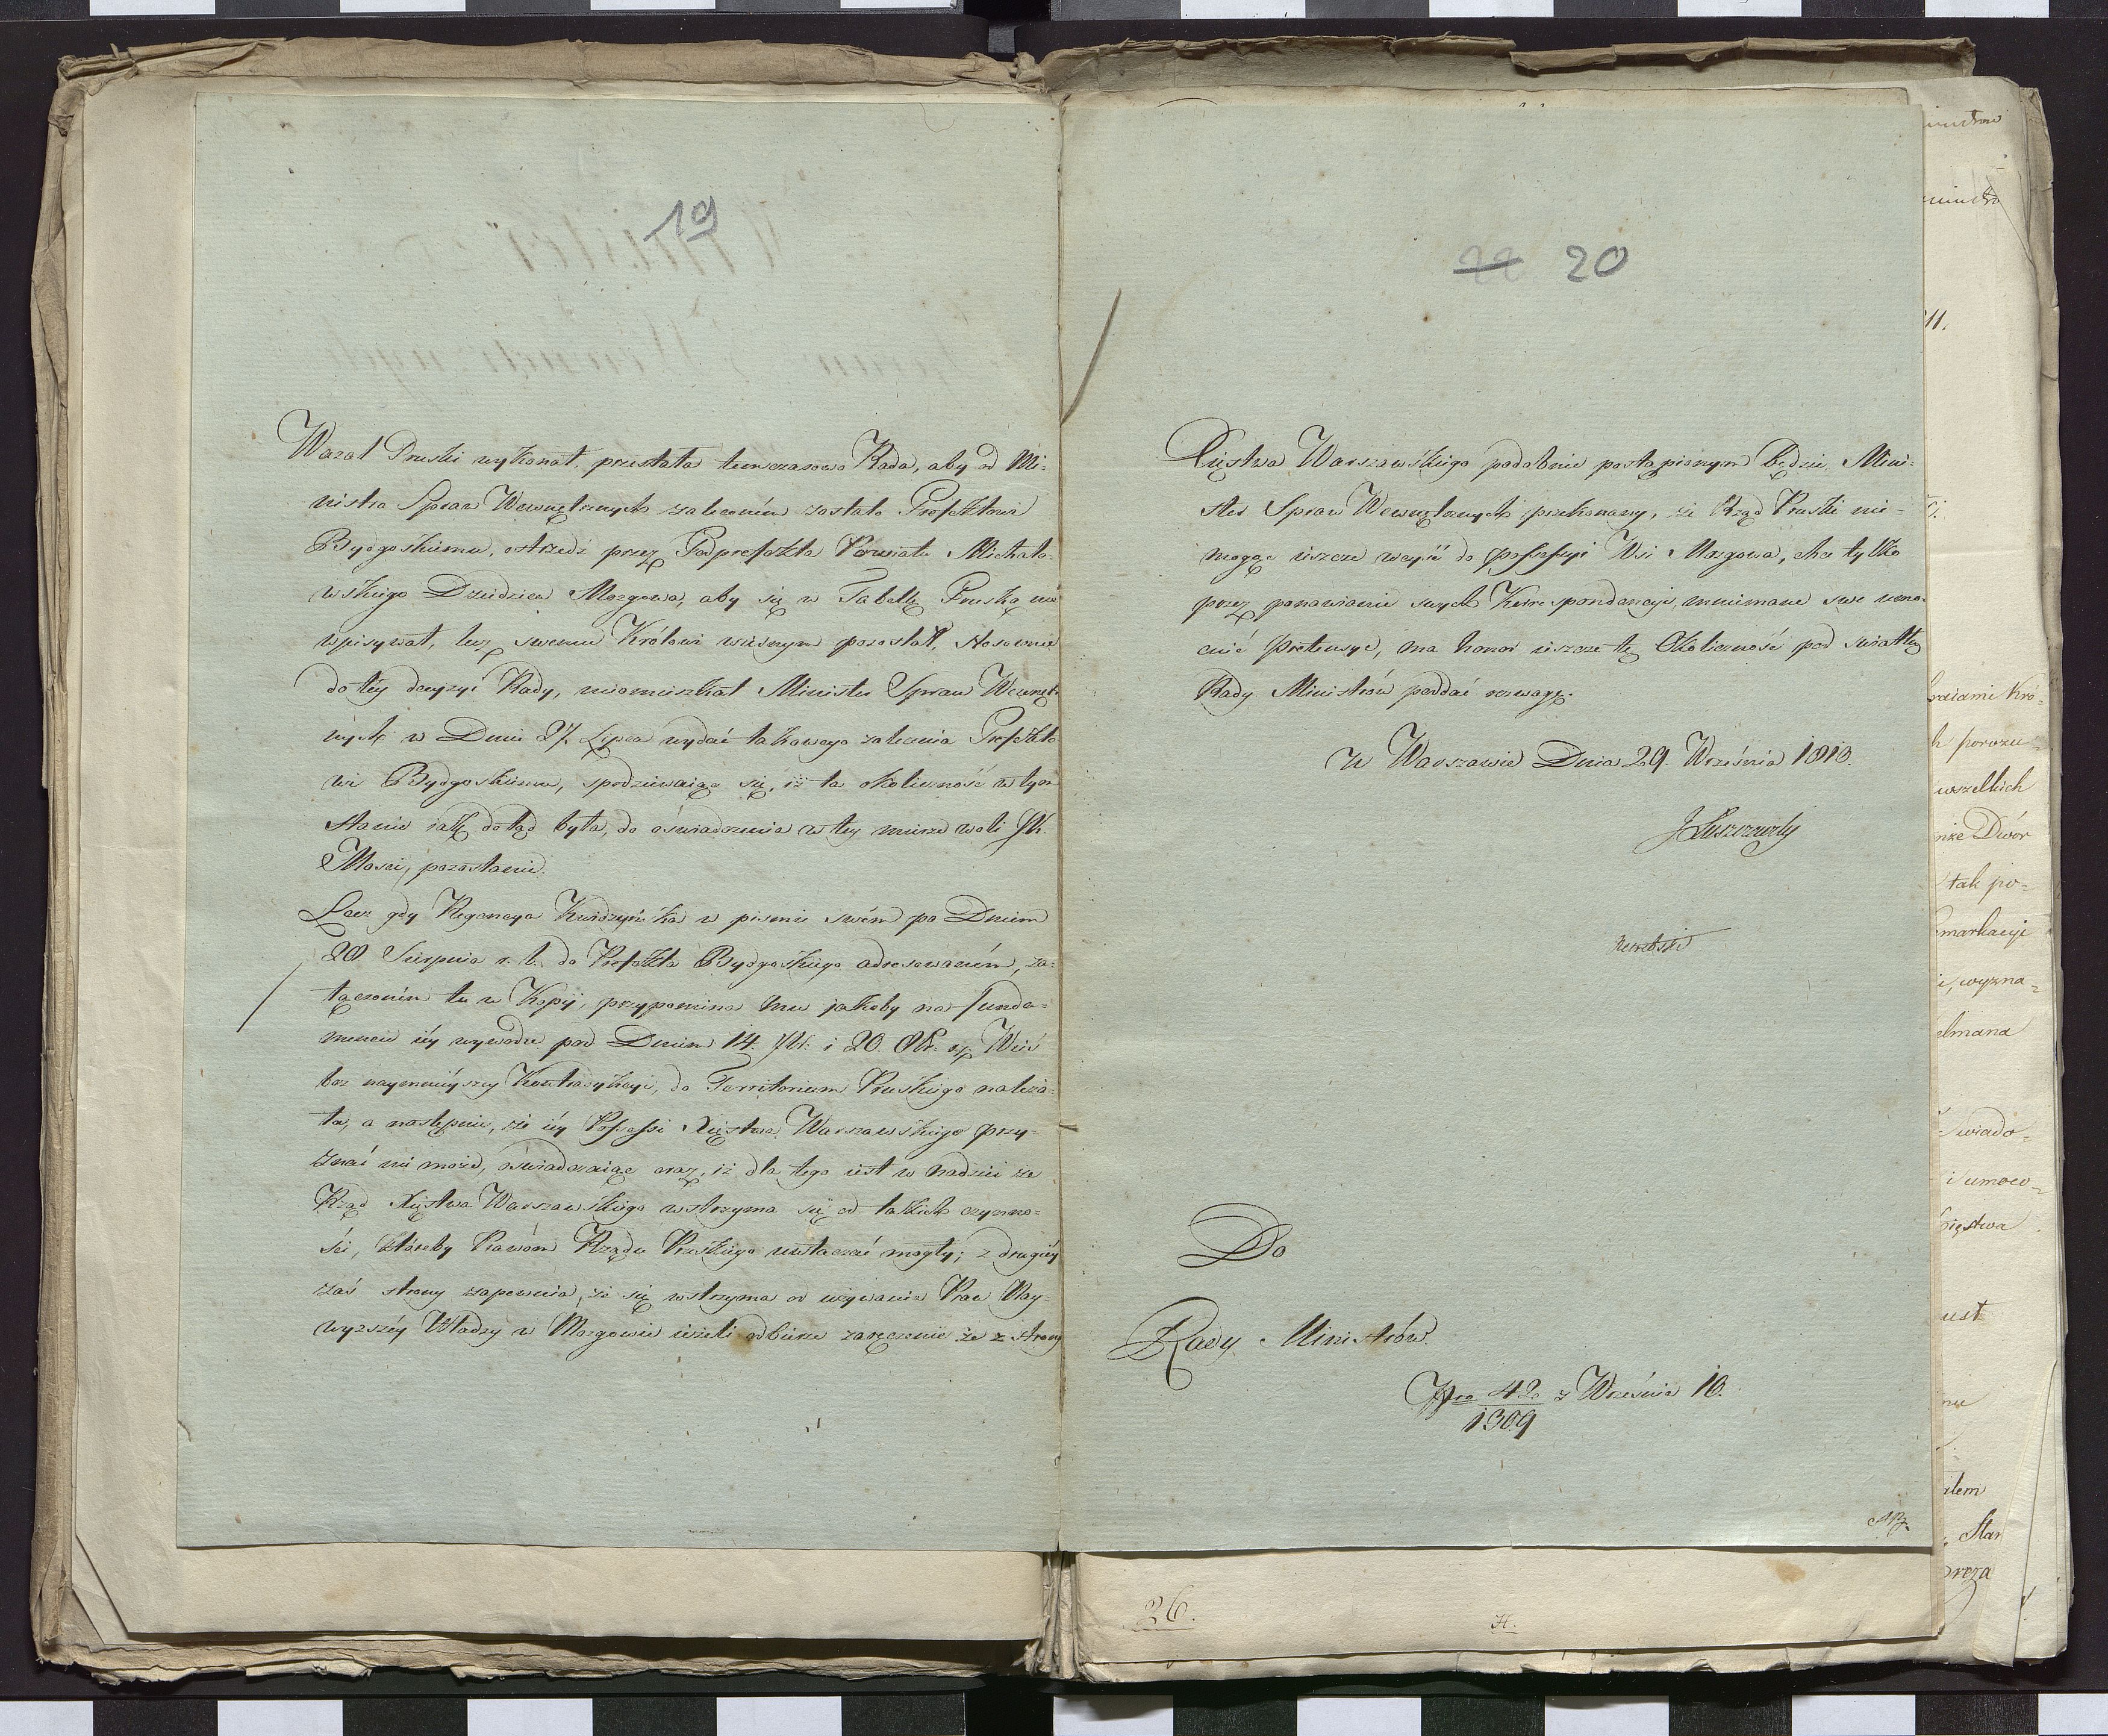 19
Wazal Pruski wykonał, przestała temczasowo Rada, aby od Mi-
nistra Spraw Wewnętrznych zaleconém zostało Prefektowi
Bydgoskiemu, ostrzedz przez Podprefekta Powiatu Michało-
wskiego Dziedzica Mozgowa, aby się w Tabellę Pruską nie
wpisywał, lecz swemu Królowi wiernym pozostał, stosownie
do téy decyzyi Rady, nieomieszkał Minister Spraw Wewnętrz-
nych w Dniu 27. Lipca wydać takowego zalecenia Prefekto-
wi Bydgoskiemu, spodziewaiąc się, iż ta okoliczność w tym
stanie iak dotąd była, do oświadczenia w tey mierze woli JK.
Mości, pozostanie.
Lecz gdy Regencya Kwidzyńska w piśmie swém po Dniem
20 Sierpnia r. b. do Prefekta Bydgoskiego adresowaném, za-
łączoném tu w Kopii, przypomina mu jakoby na funda-
mencie iéy wywodu pod Dniem 14. i 20. Wieś
bez naymnieyszey Kontradykcyi, do Territorium Pruskiego należa-
ła, a następnie, że iéy Possessi Xięstwa Warszawskiego przy-
znać nie może, oświadczaiąc oraz, iż dla tego iest w nadziei że
Rząd Xięstwa Warszawskiego wstrzyma się od takich czynno-
ści, któreby Prawóm Rządu Pruskiego uwłaczać mogły; z drugiéy
zaś strony zapewnia, że się wstrzyma od używania Praw Nay-
wyższéy Władzy w Mozgowie ieżeli odbierze zaręczenie że z strony
22 20
Xięstwa Warszawskiego podobnie postąpionym będzie, Mini-
ster Spraw Wewnętrznych przekonany, że Rząd Pruski nie-
mogąc ieszcze weyść do possessyi Wsi Mozgowa, chce tylko
przez ponawianie swych Korrespondencyi, mniemane swe wzmo-
cnić pretensye, ma honor ieszcze tę Okoliczność pod światłą
Rady Ministrów poddać rozwagę.
w Warszawie Dnia 29. Września 1810.
JLuszczewsky
Do
Rady Ministrów.
Nro 42 z Września 10.
1309
26.
H.
11.
kró-
h porozu-
wszelkich
Dwór
tak po-
markacyi
i, wyzna-
elmana
wiado-
i umoco-
ięstwa
ust